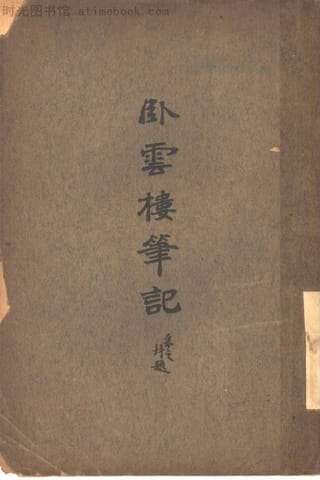 时光图书馆 - www.atimebook.com
卧雲樓筆記
拜題